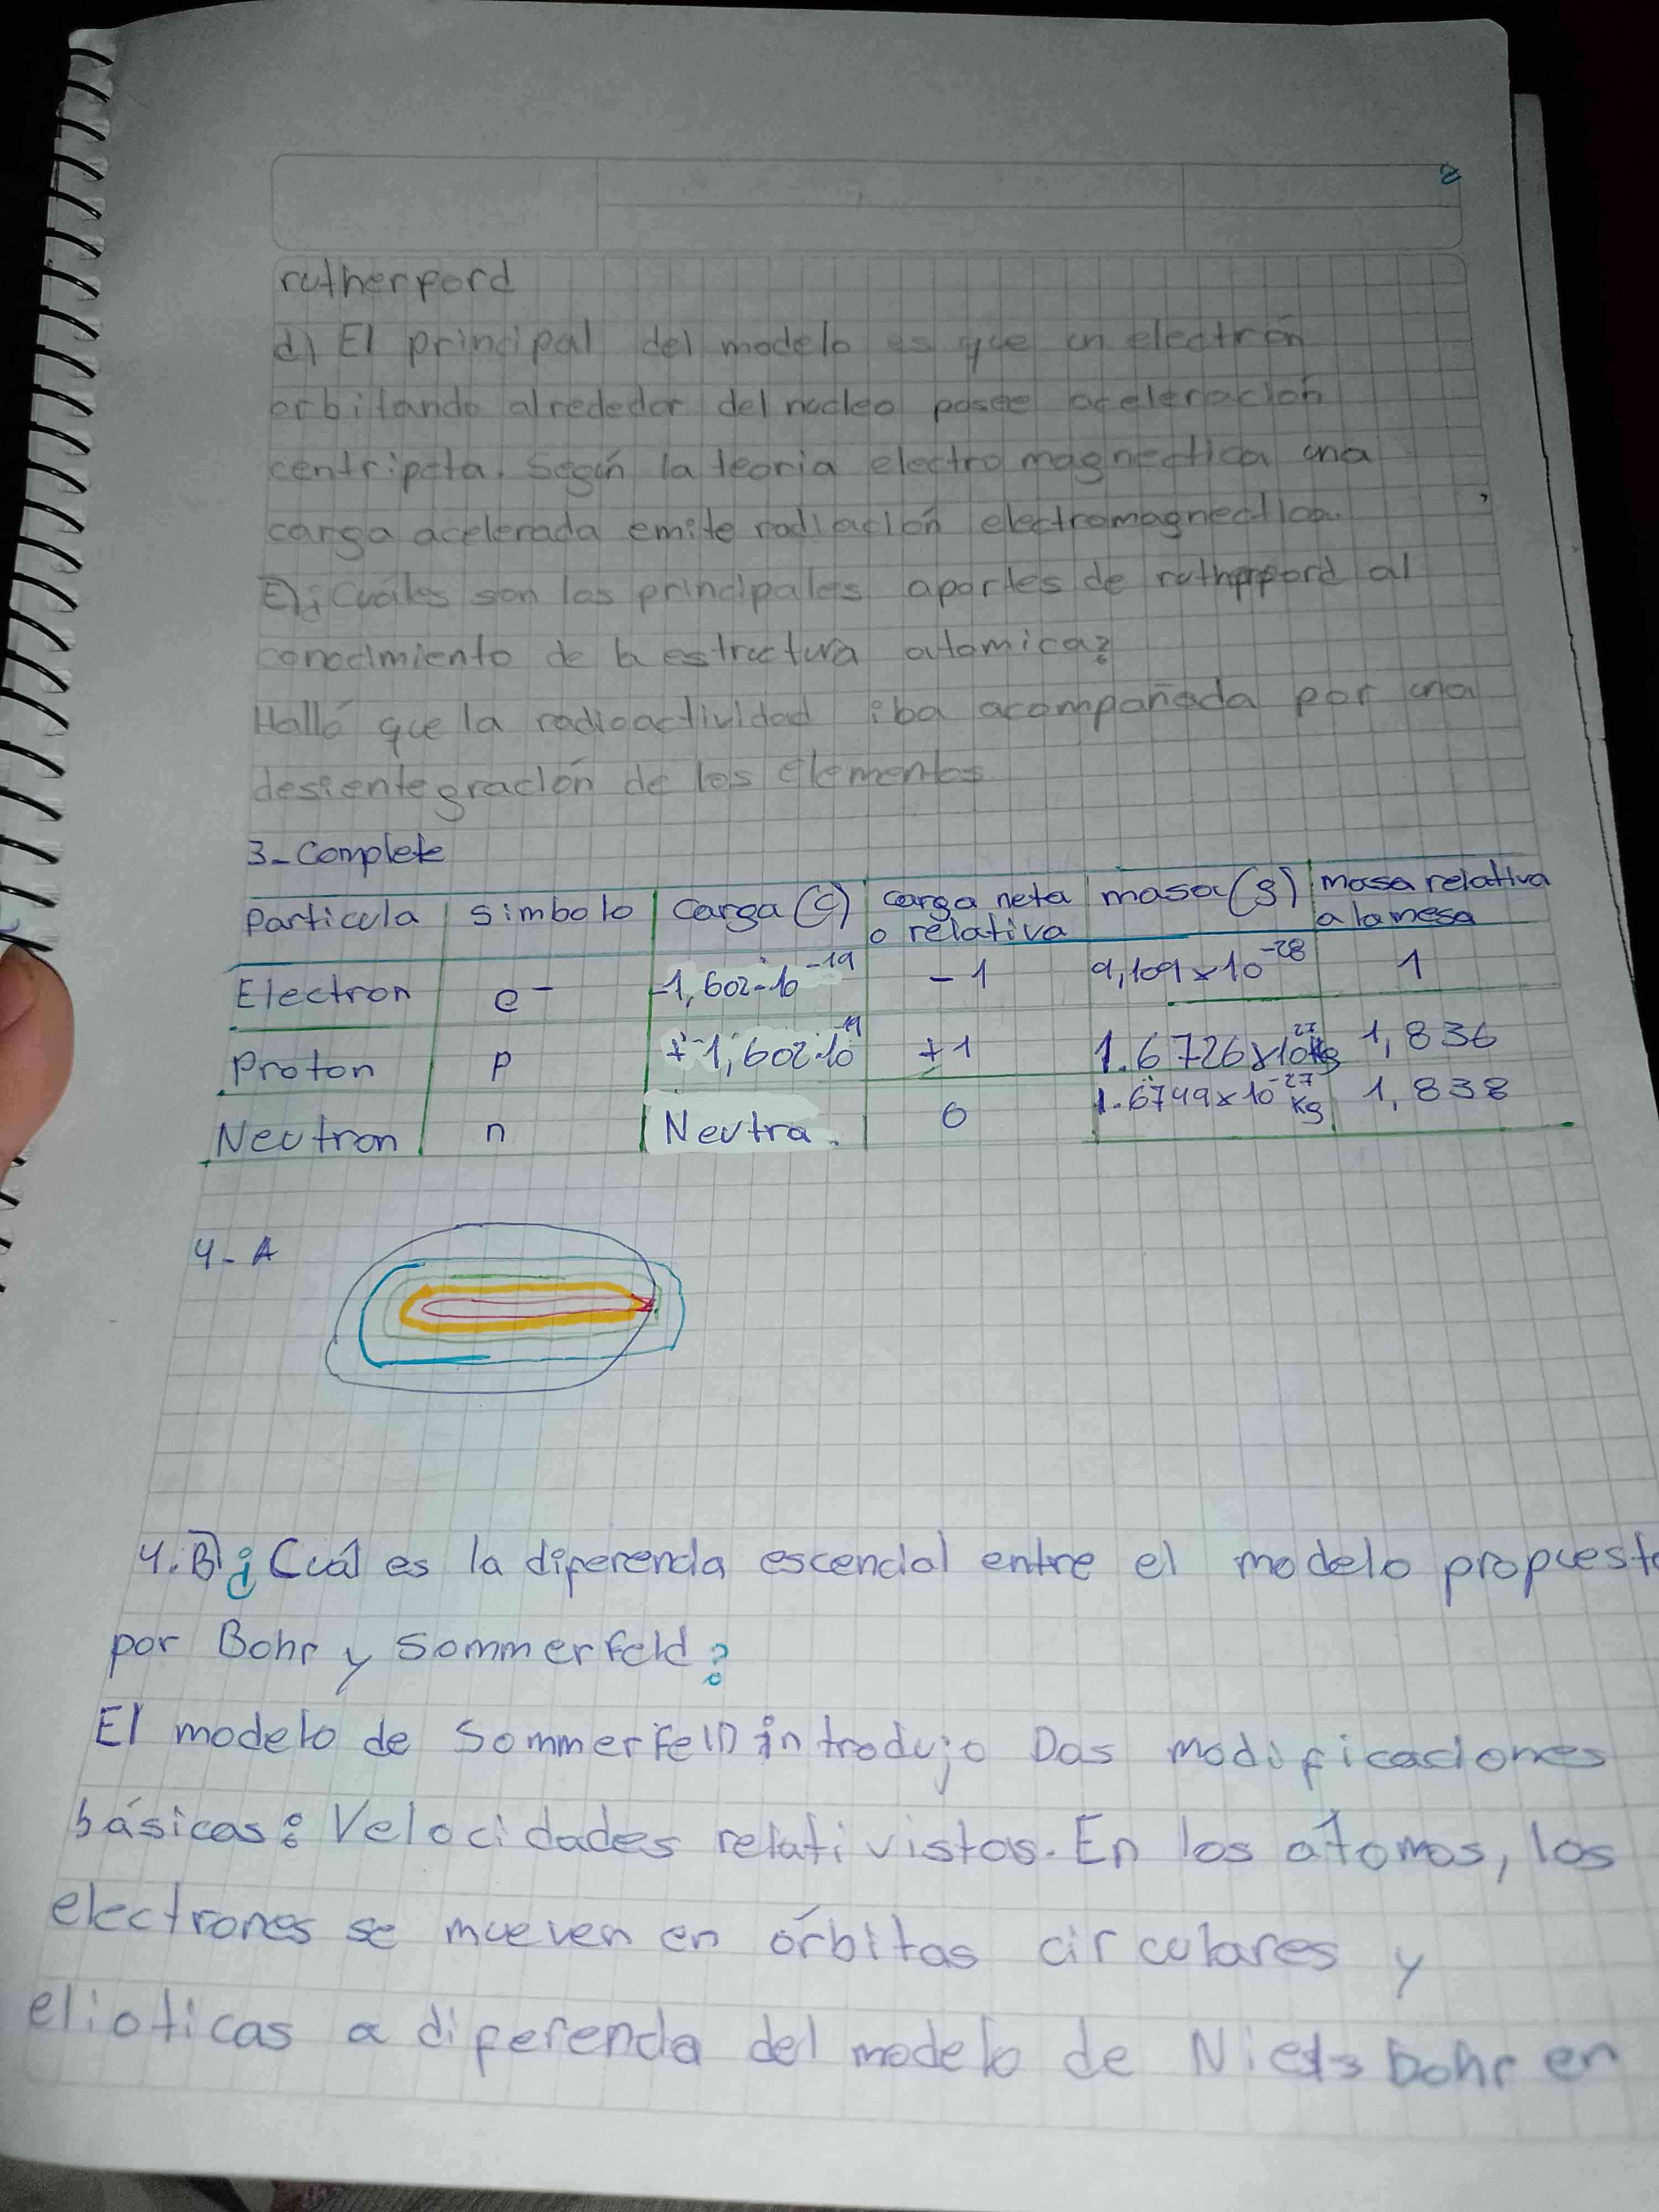 2
rutherford
d) El principal del modelo es que un electrón
orbitando alrededor del nucleo posee aceleración
centripeta. Según la teoria electro magnectica una
carga acelerada emite radiación electromagnectica.
E) ¿Cuáles son los principales aportes de rutherford al
conocimiento de la estructura atomica?
Halló que la radioactividad iba acompañada por una
desientegración de los elementos
3- Complete
Particula simbolo carga (c) carga neta o relativa masa (g) masa relativa a la mesa
Electron e⁻ -1,602·10⁻¹⁹ -1 9,109x10⁻²⁸ 1
Proton p + 1,602·10⁻¹⁹ +1 1.6726x10²⁷ kg 1,836
Neutron n Neutra. 0 1.6749x10⁻²⁷ kg 1,838
4- A
4.B) ¿Cuál es la diferencia escencial entre el modelo propuesto
por Bohr y Sommerfeld?
El modelo de Sommerfeld introdujo Dos modificaciones
básicas: Velocidades relativistas. En los átomos, los
electrones se mueven en órbitas circulares y
elioticas a diferencia del modelo de Niels Bohr en